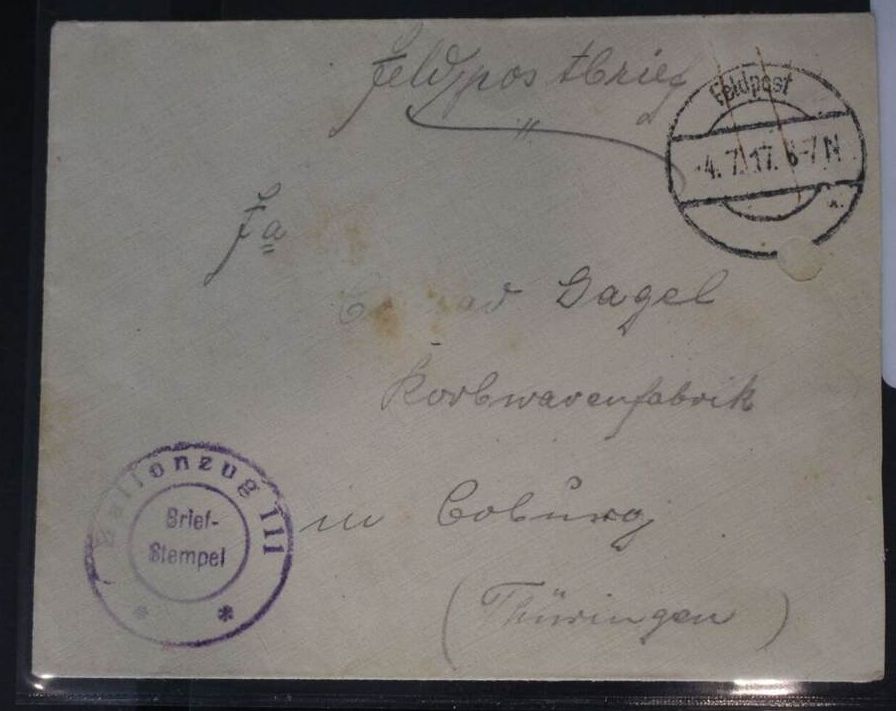 Feldpostbrief
Feldpost
-4.7.17. 6-7 N
Fa
Gagel
Korbwarenfabrik
in Coburg
(Thüringen)
Ballonzug 111
Brief-
Stempel
* *